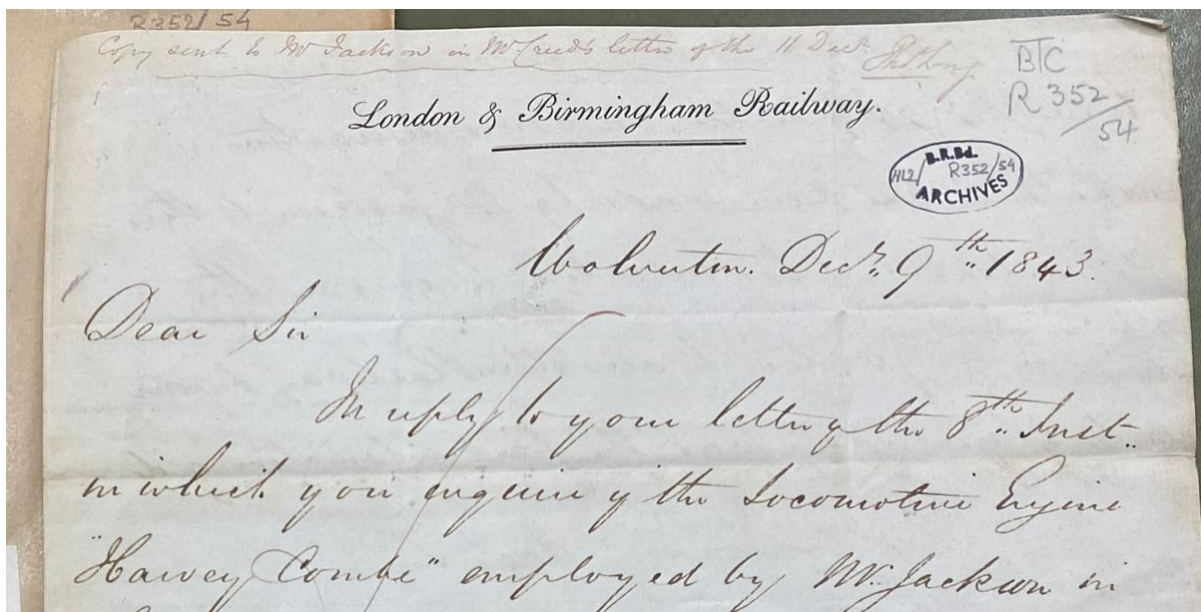 R352/54
Copy sent to Mr Jackson in Mr Creed's letter of the 11 Decr.
BTC
R 352/54
London & Birmingham Railway.
B.R.Bd.
HL2/ R352/54
ARCHIVES
Wolverton. Decr. 9th. 1843.
Dear Sir
In reply to your letter of the 8th. Inst.
in which you enquire if the Locomotive Engine
"Harvey Combe" employed by Mr. Jackson in